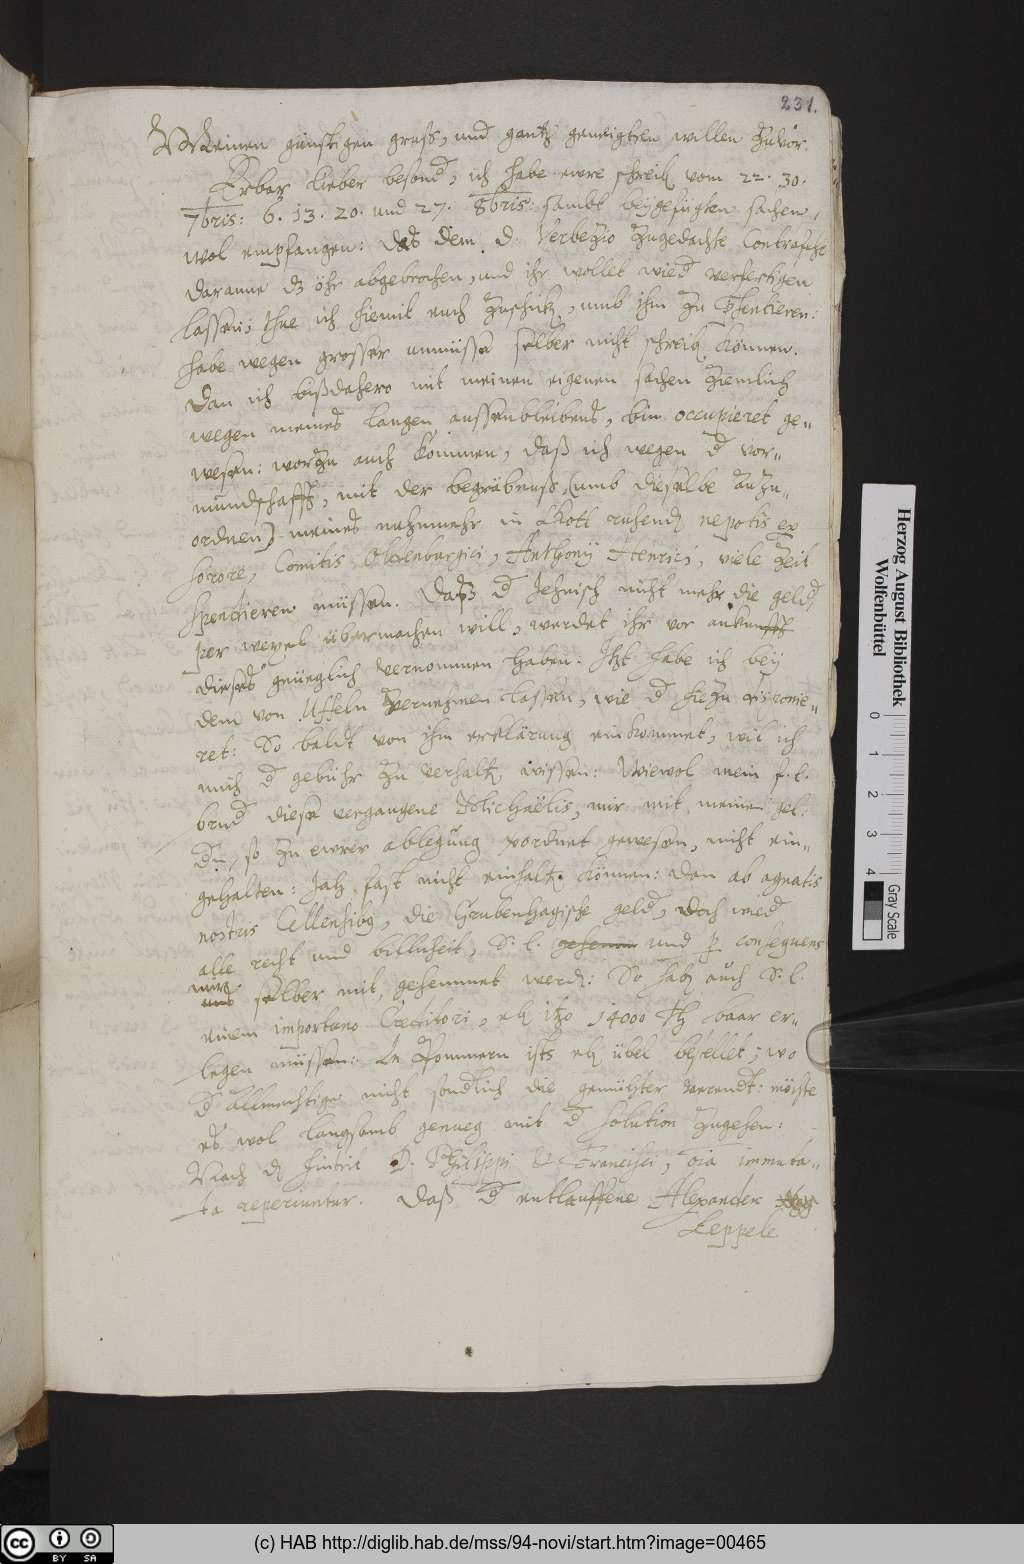 231.
Meinen günstigen gruß, und gantz geneigten willen zuvor.
Erbar lieber besond, ich habe ewre schreib vom 22. 30.
7bris: 6. 13. 20. und 27. 8bris: sambt beÿgefügten sachen,
wol empfangen: das dem D. Verbezio zugedachte Contrafehe
daranne dz öhr abgebrochen, und ihr wollet wied verfertigen
lassen, thue ich hiemit euch zuschick, umb ihm zu phentieren:
habe wegen grosser unmüsse selber nicht schreib können.
Dan ich bißdahero mit meinen eigenen sachen ziemlich
wegen meines langen aussenbleibens, bin occupieret ge-
wesen: worzu auch kommen, daß ich wegen d vor-
mundschafft, mit der begräbnuss, (umb dieselbe anzu-
ordnen) meines nuhnmehr in Gott ruhend nepotis ex
sorore, Comitis Oldenburgici, Anthonij Henrici, viele zeit
spendieren müssen. Daß d Jehnisch nicht mehr die geld
per wexel übermachen will, werdet ihr vor ankunfft
dieses gnüeglich vernommen haben. Itzt habe ich beÿ
dem von Uffeln vernehmen lassen, wie d hiezu disponie-
ret: So baldt von ihm erklärung einkommet, will ich
mich d gebühr zu verhalt, wissen: Wiewol mein f. l.
brud diese vergangene Michaëlis, mir mit meinen gel-
dn, so zu ewrer ablegung vordnet gewesen, nicht ein-
gehalten: Jah fast nicht einhalt können: dan ab agnatis
nostris Cellensibq, die Grubenhagische geld, doch wied
alle recht und billicheit, S. l. gehemm und p consequens
mir
uns selber mit, gehemmet werd: So hab auch S. l.
einem importuno Creditori, itzo 14000 Th baar er-
legen müssen: In Pommern ists übel bestellet; wo
d Allmechtige nicht sondlich die gemühter verendt: möchte
es wol langsamb genueg mit d solution zugehen:
Nach dz hintrit D. Philippi & Francisci, oia immuta-
ta reperiuntur. Daß d entlauffene Alexander
Keppele
Herzog August Bibliothek
Wolfenbüttel
0 1 2 3 4
Gray Scale
cc BY SA
(c) HAB http://diglib.hab.de/mss/94-novi/start.htm?image=00465